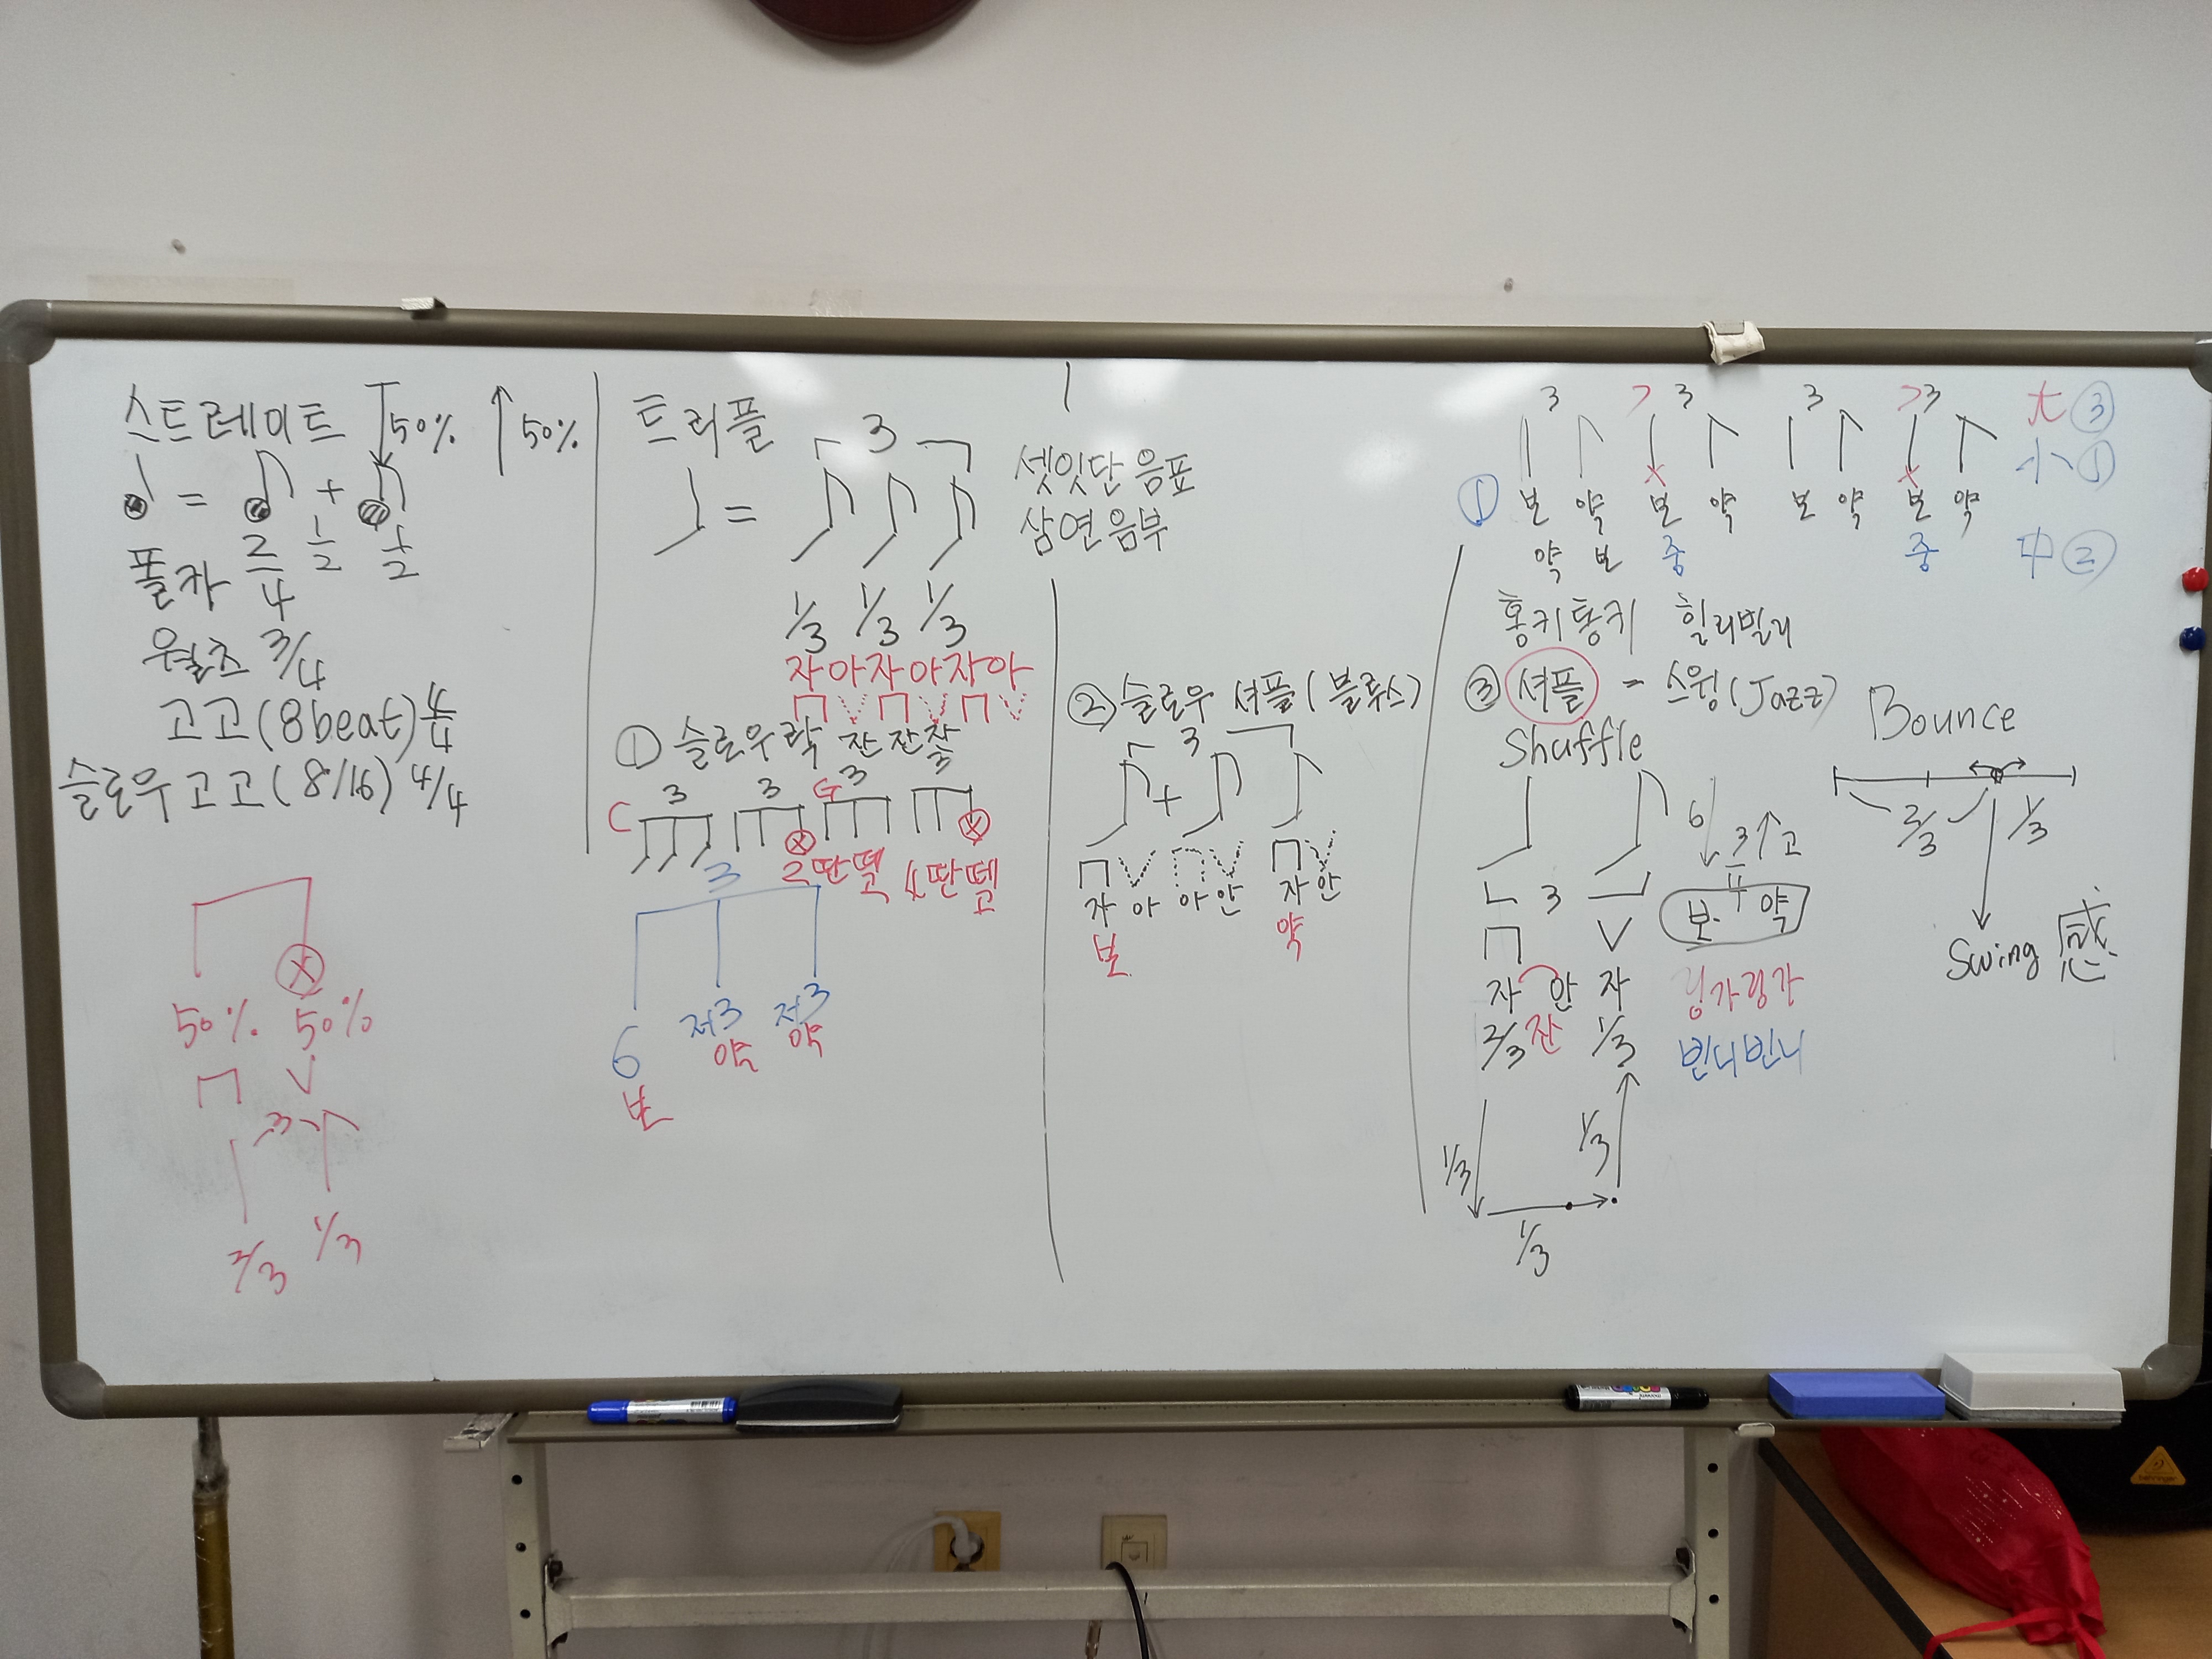 스트레이트 50% 50%
= +
2/4 1/2 1/2
폴카
월츠 3/4
고고(8beat) 4/4
슬로우고고(8/16) 4/4
50% 50%
3
2/3 1/3
트리플
3
=
셋잇단음표
삼연음부
1/3 1/3 1/3
자아자아자아
① 슬로우락 잔잔잔
3 3 3 3
C G
2딴 4딴
3
6 저3 저3
본 약 약
② 슬로우 셔플(블루스)
3
+
자 아 아 안 자 안
본 약
3 3 3 3
大 ③
小 ①
中 ②
① 본 약 본 약 본 약 본 약
약 본 중 중
홍키통키 힐리빌리
③ 셔플 - 스윙(Jazz)
Shuffle
3
6 3 고
4
본 약
자 안 자
2/3 잔 1/3
링가링가
빈니빈니
1/3 1/3
1/3
Bounce
2/3 1/3
Swing 感